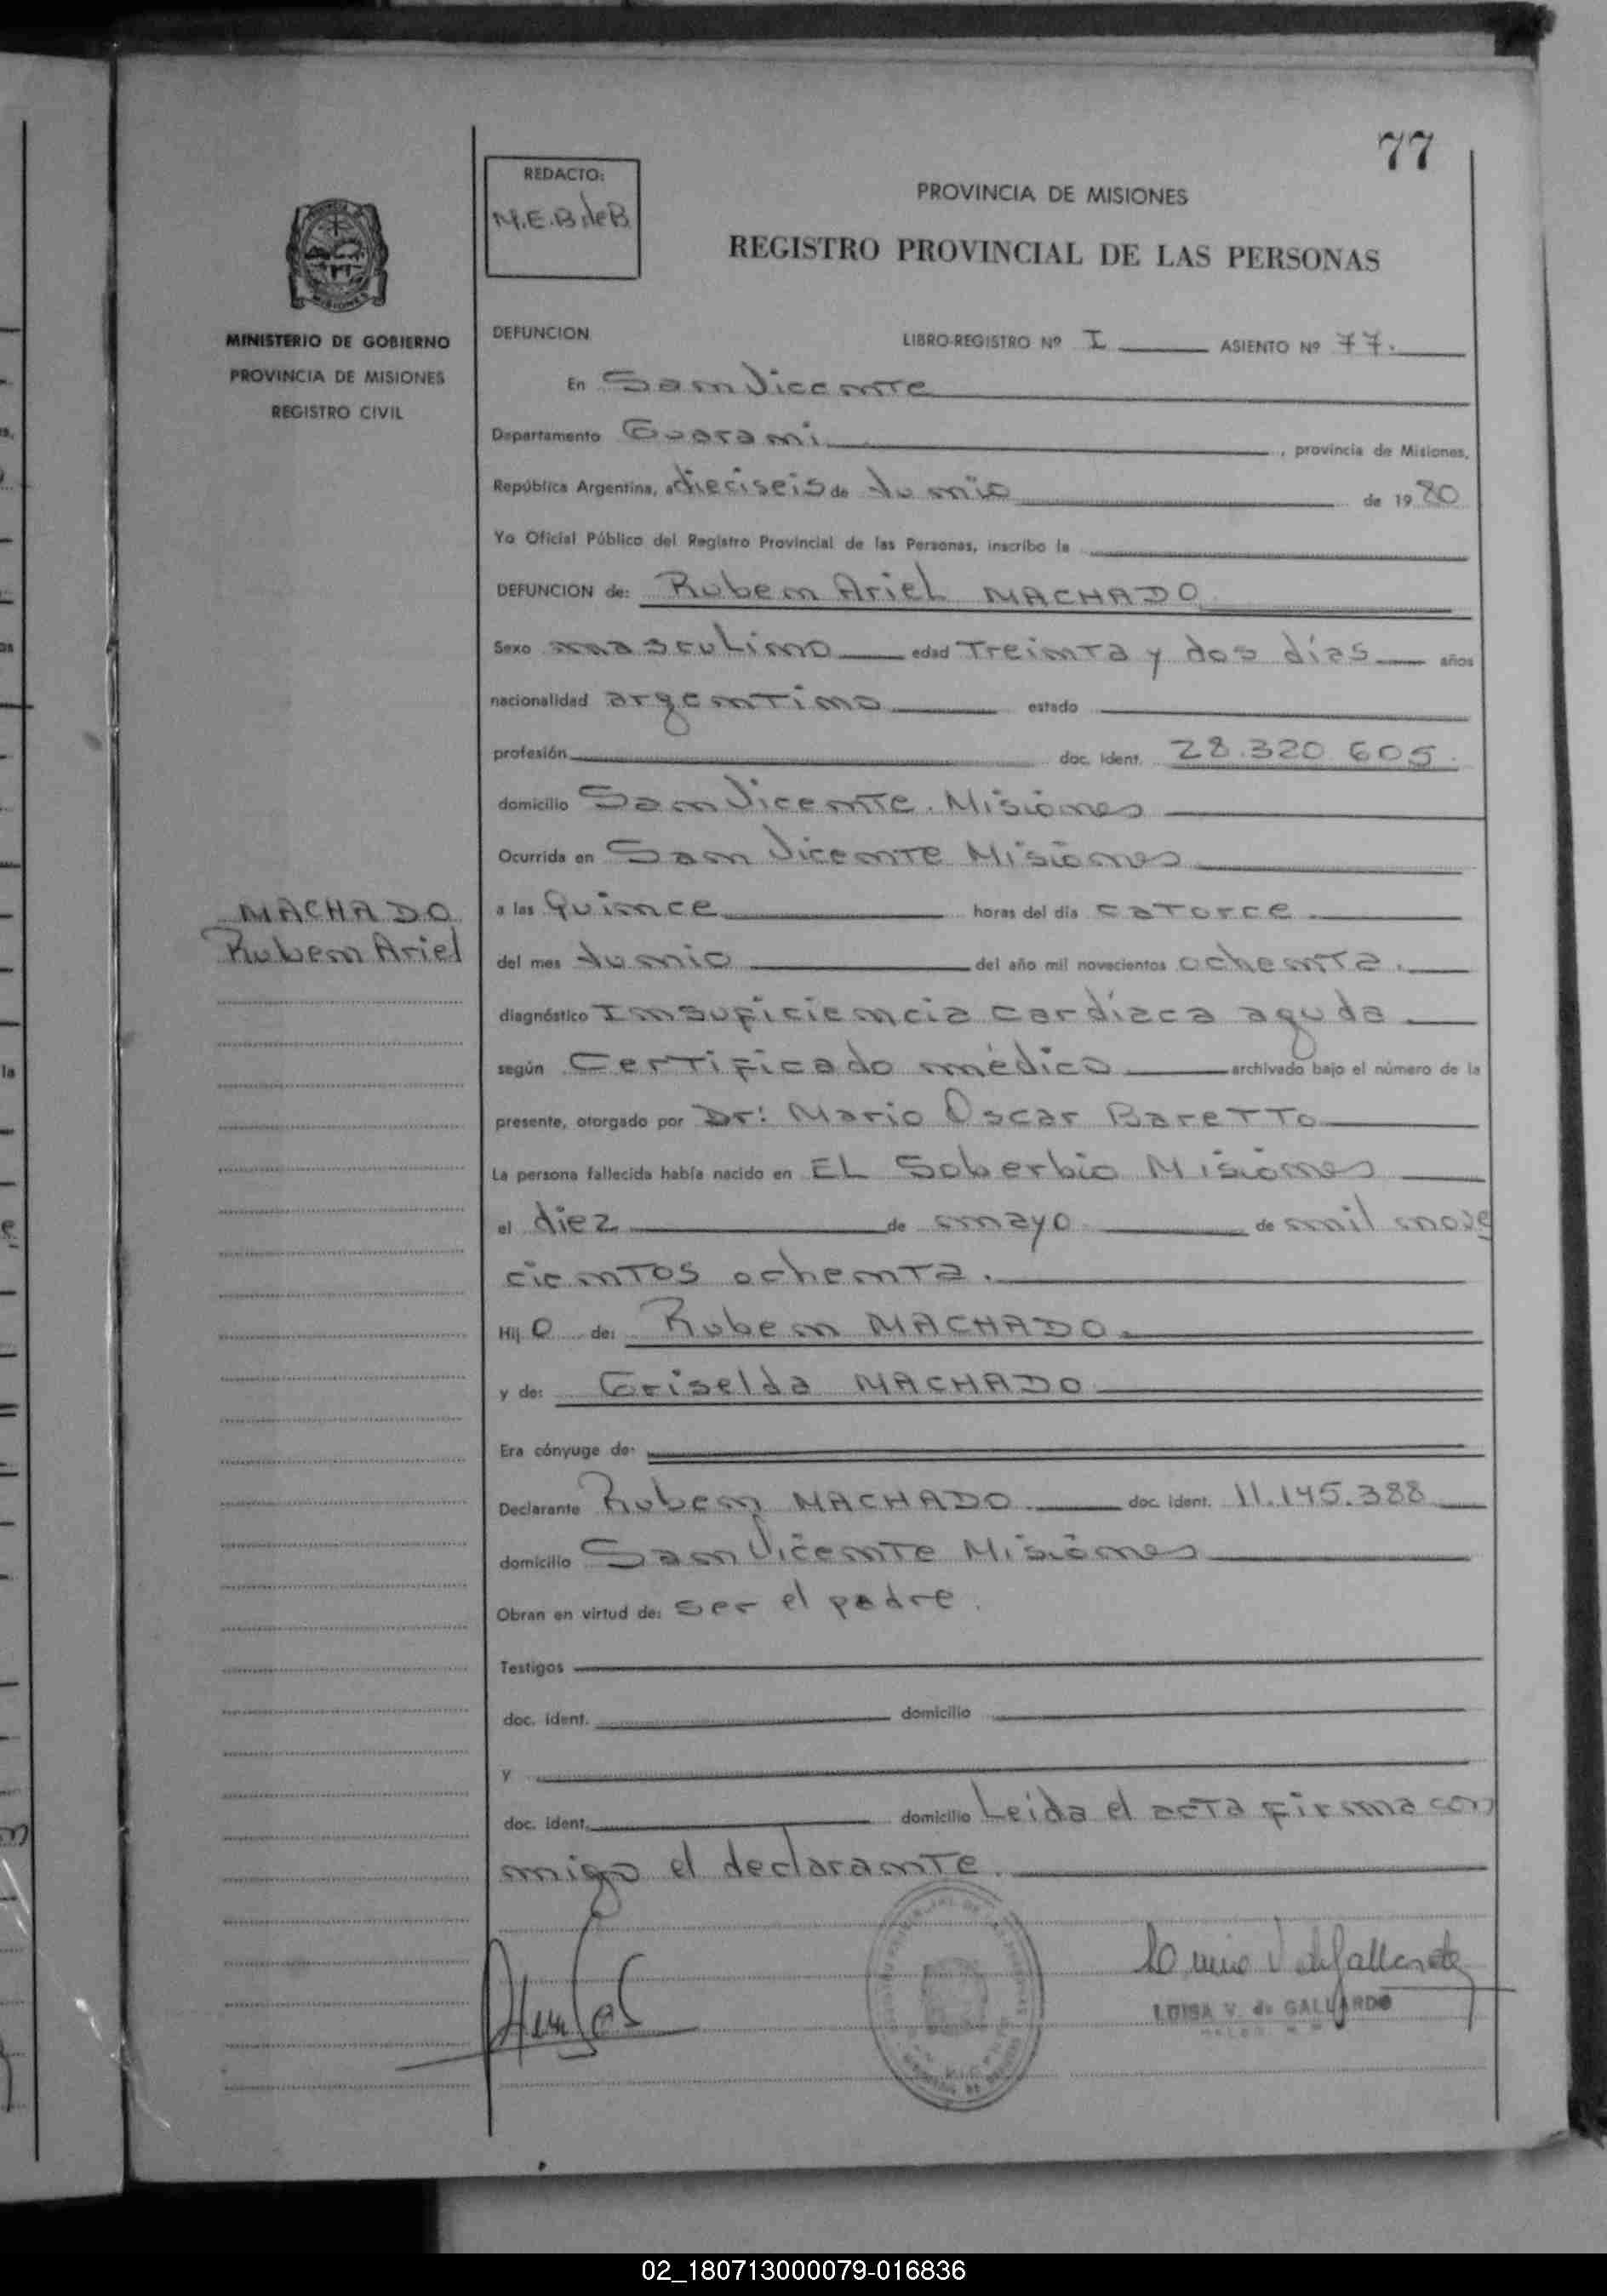 77
REDACTO:
M.E.B de B.
PROVINCIA DE MISIONES
REGISTRO PROVINCIAL DE LAS PERSONAS
MINISTERIO DE GOBIERNO
PROVINCIA DE MISIONES
REGISTRO CIVIL
DEFUNCION LIBRO-REGISTRO Nº I ASIENTO Nº 77.
En San Vicente
Departamento Guarani , provincia de Misiones,
República Argentina, a dieciseis de Junio de 1980
Yo Oficial Público del Registro Provincial de las Personas, inscribo la
DEFUNCION de: Ruben Ariel MACHADO
Sexo masculino edad Treinta y dos días años
nacionalidad argentino estado
profesión doc. ident. 28.320.605.
domicilio San Vicente. Misiones
Ocurrida en San Vicente Misiones
MACHADO
Ruben Ariel
a las Quince horas del día catorce
del mes Junio del año mil novecientos ochenta.
diagnóstico Insuficiencia cardíaca aguda
según Certificado médico archivado bajo el número de la
presente, otorgado por Dr: Mario Oscar Baretto
La persona fallecida había nacido en EL Soberbio Misiones
el diez de mayo de mil nove
cientos ochenta.
Hijo de: Ruben MACHADO.
y de: Griselda MACHADO
Era cónyuge de:
Declarante Ruben MACHADO doc. ident. 11.145.388
domicilio San Vicente Misiones
Obran en virtud de: ser el padre.
Testigos
doc. ident. domicilio
y
doc. ident. domicilio Leida el acta firma con
migo el declarante.
LUISA V. de GALLARDO
02_180713000079-016836